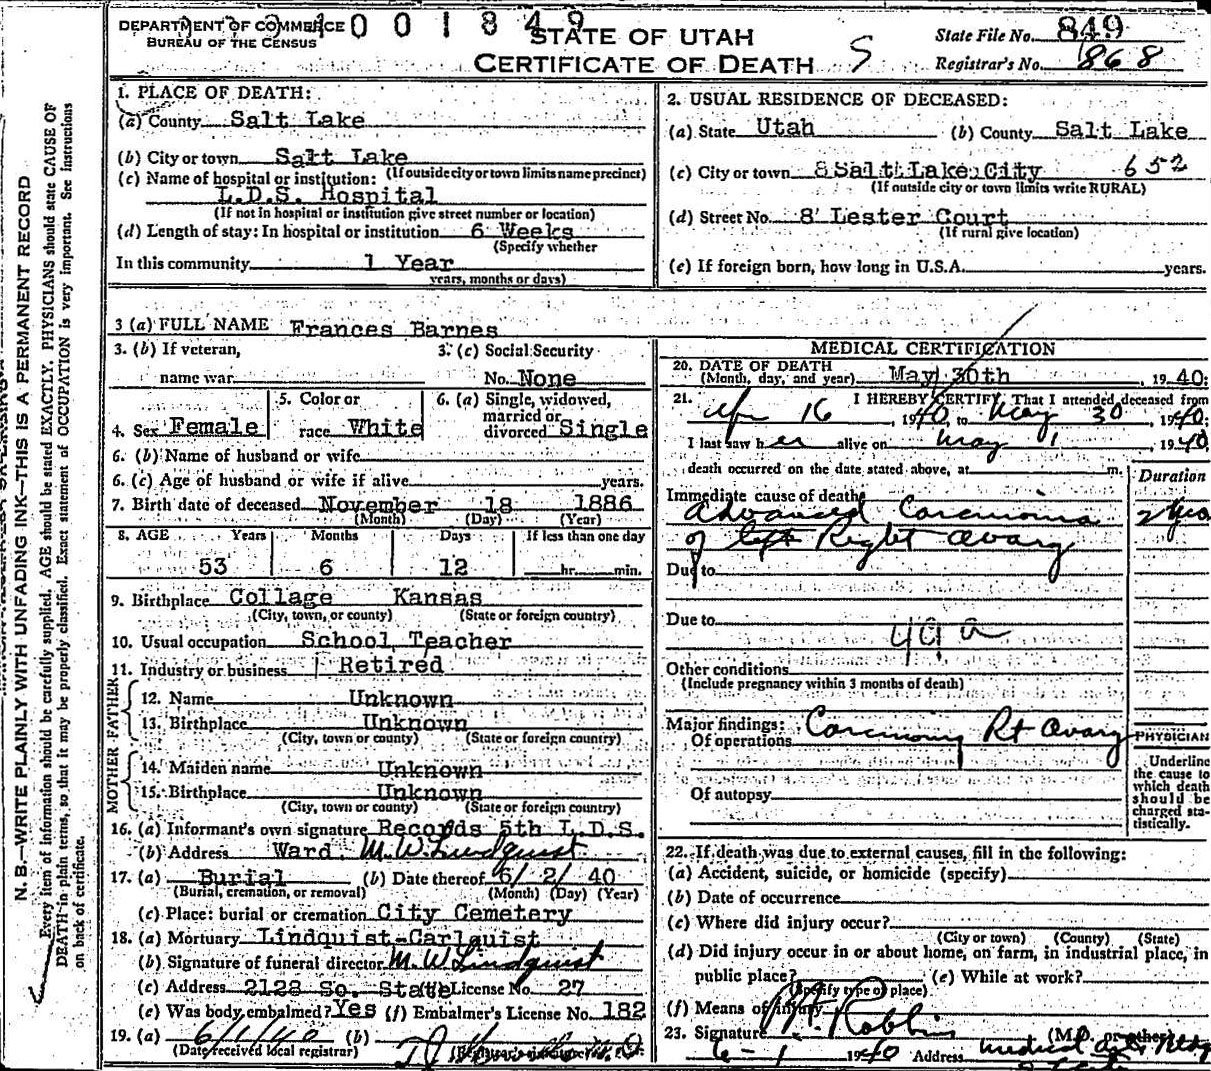 DEPARTMENT OF COMMERCE 001849
BUREAU OF THE CENSUS
STATE OF UTAH
CERTIFICATE OF DEATH S
State File No. 849
Registrar's No. 868
N. B.—WRITE PLAINLY WITH UNFADING INK—THIS IS A PERMANENT RECORD
Every item of information should be carefully supplied. AGE should be stated EXACTLY. PHYSICIANS should state CAUSE OF
DEATH in plain terms, so that it may be properly classified. Exact statement of OCCUPATION is very important. See instructions
on back of certificate.
1. PLACE OF DEATH:
(a) County Salt Lake
(b) City or town Salt Lake
(If outside city or town limits name precinct)
(c) Name of hospital or institution:
L.D.S. Hospital
(If not in hospital or institution give street number or location)
(d) Length of stay: In hospital or institution 6 Weeks
(Specify whether
In this community 1 Year
years, months or days)
2. USUAL RESIDENCE OF DECEASED:
(a) State Utah (b) County Salt Lake
(c) City or town Salt Lake City 652
(If outside city or town limits write RURAL)
(d) Street No. 8 Lester Court
(If rural give location)
(e) If foreign born, how long in U.S.A. years.
3 (a) FULL NAME Frances Barnes
3. (b) If veteran,
name war
3. (c) Social Security
No. None
4. Sex Female
5. Color or
race White
6. (a) Single, widowed,
married or
divorced Single
6. (b) Name of husband or wife
6. (c) Age of husband or wife if alive years.
7. Birth date of deceased November 18 1886
(Month) (Day) (Year)
8. AGE Years Months Days If less than one day
53 6 12 hr. min.
9. Birthplace Collage Kansas
(City, town, or county) (State or foreign country)
10. Usual occupation School Teacher
11. Industry or business Retired
FATHER
12. Name Unknown
13. Birthplace Unknown
(City, town or county) (State or foreign country)
MOTHER
14. Maiden name Unknown
15. Birthplace Unknown
(City, town or county) (State or foreign country)
16. (a) Informant's own signature Records 5th L.D.S.
(b) Address Ward M.W. Lindquist
17. (a) Burial (b) Date thereof 6/ 2/ 40
(Burial, cremation, or removal) (Month) (Day) (Year)
(c) Place: burial or cremation City Cemetery
18. (a) Mortuary Lindquist-Carlquist
(b) Signature of funeral director M.W. Lindquist
(c) Address 2128 So. State License No. 27
(e) Was body embalmed? Yes (f) Embalmer's License No. 182
19. (a) 6/1/40 (b)
(Date received local registrar)
MEDICAL CERTIFICATION
20. DATE OF DEATH
(Month, day, and year) May 30th, 1940:
21. I HEREBY CERTIFY, That I attended deceased from
Apr 16, 1940, to May 30, 1940;
I last saw her alive on May 1 1940,
death occurred on the date stated above, at m.
Duration
Immediate cause of death
Advanced Carcinoma 2 yrs
of left Right Ovary
Due to
Due to
49 a
Other conditions
(Include pregnancy within 3 months of death)
Major findings:
Of operations Carcinoma Rt Ovary
Of autopsy
PHYSICIAN
Underline
the cause to
which death
should be
charged sta-
tistically.
22. If death was due to external causes, fill in the following:
(a) Accident, suicide, or homicide (specify)
(b) Date of occurrence
(c) Where did injury occur?
(City or town) (County) (State)
(d) Did injury occur in or about home, on farm, in industrial place, in
public place? (e) While at work?
(Specify type of place)
(f) Means of injury
23. Signature Robbins (M.D. or other)
6-1 1940 Address Medical Arts Bldg